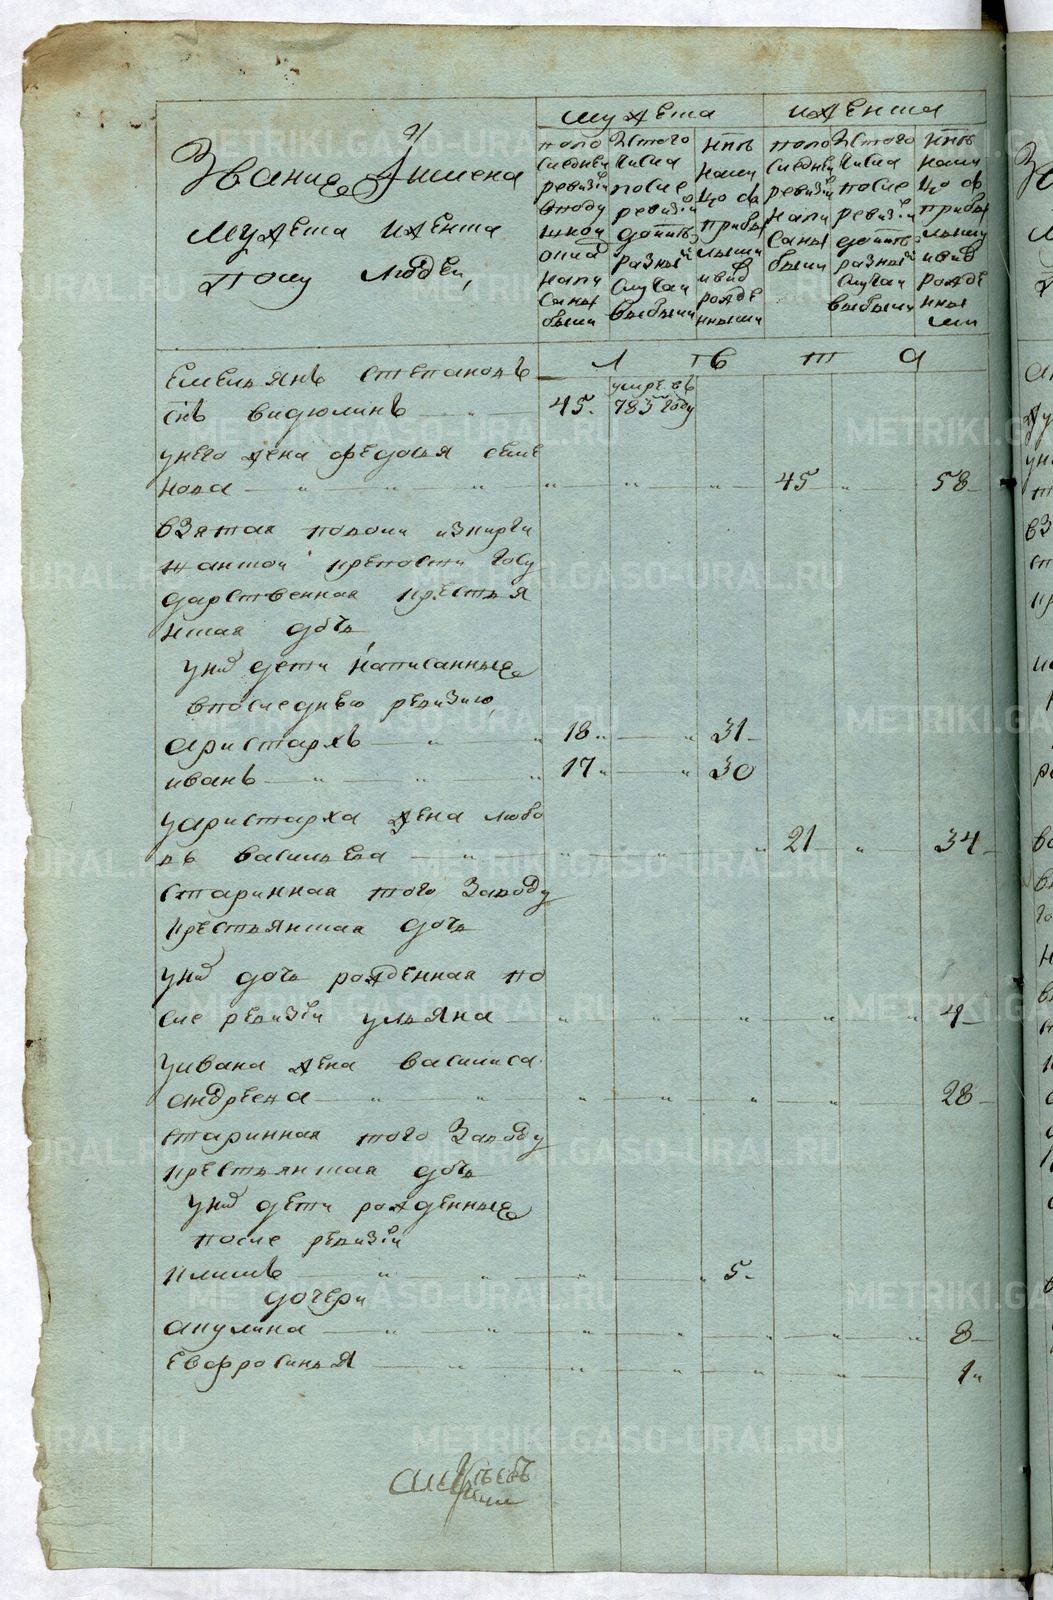 Звание Iимена
мужеска иженска
полу людей,
мужеска
женска
попо
следней
ревизiи
вподу
шной
окладъ
напи
саны
были
Изтого
числа
после
ревизiи
допить
разныi
случаи
выбыли
Нть
нали
цо съ
прибы
лыми
ивнов
рожде
нными
попо
следней
ревизiи
напи
саны
были
Изтого
числа
после
ревизiи
допить
разныi
случаи
выбыли
Нть
нали
цо съ
прибы
лыми
ивнов
рожде
нны
ми
Л тв т а
емельянъ степановъ
снъ видюлинъ 45. умре въ 783 году
унего жена федосья семе
нова 45 58
взятая подоми изкурги
нской крепости госу
дарственная крестья
нская дочь
унихъ дети написанные
впоследнею ревизию,
аристархъ 18 31
иванъ 17 30
уаристарха жена любо
вь васильева 21 34
старинная того заводу
крестьянская дочь
унихъ дочь рожденная по
сле ревизiи ульяна 4
уивана жена василиса
андреева 28
старинная того заводу
крестьянская дочь
унихъ дети рожденные
после ревизiи
климъ 5
дочери
акулина 8
евфросинья 1